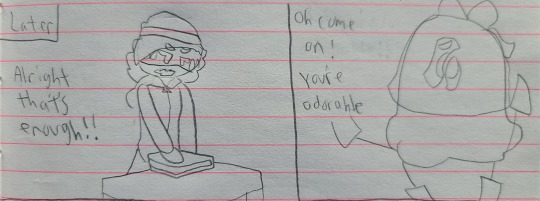 Later
Alright
that's
enough!!
Oh come
on!
you're
adorable